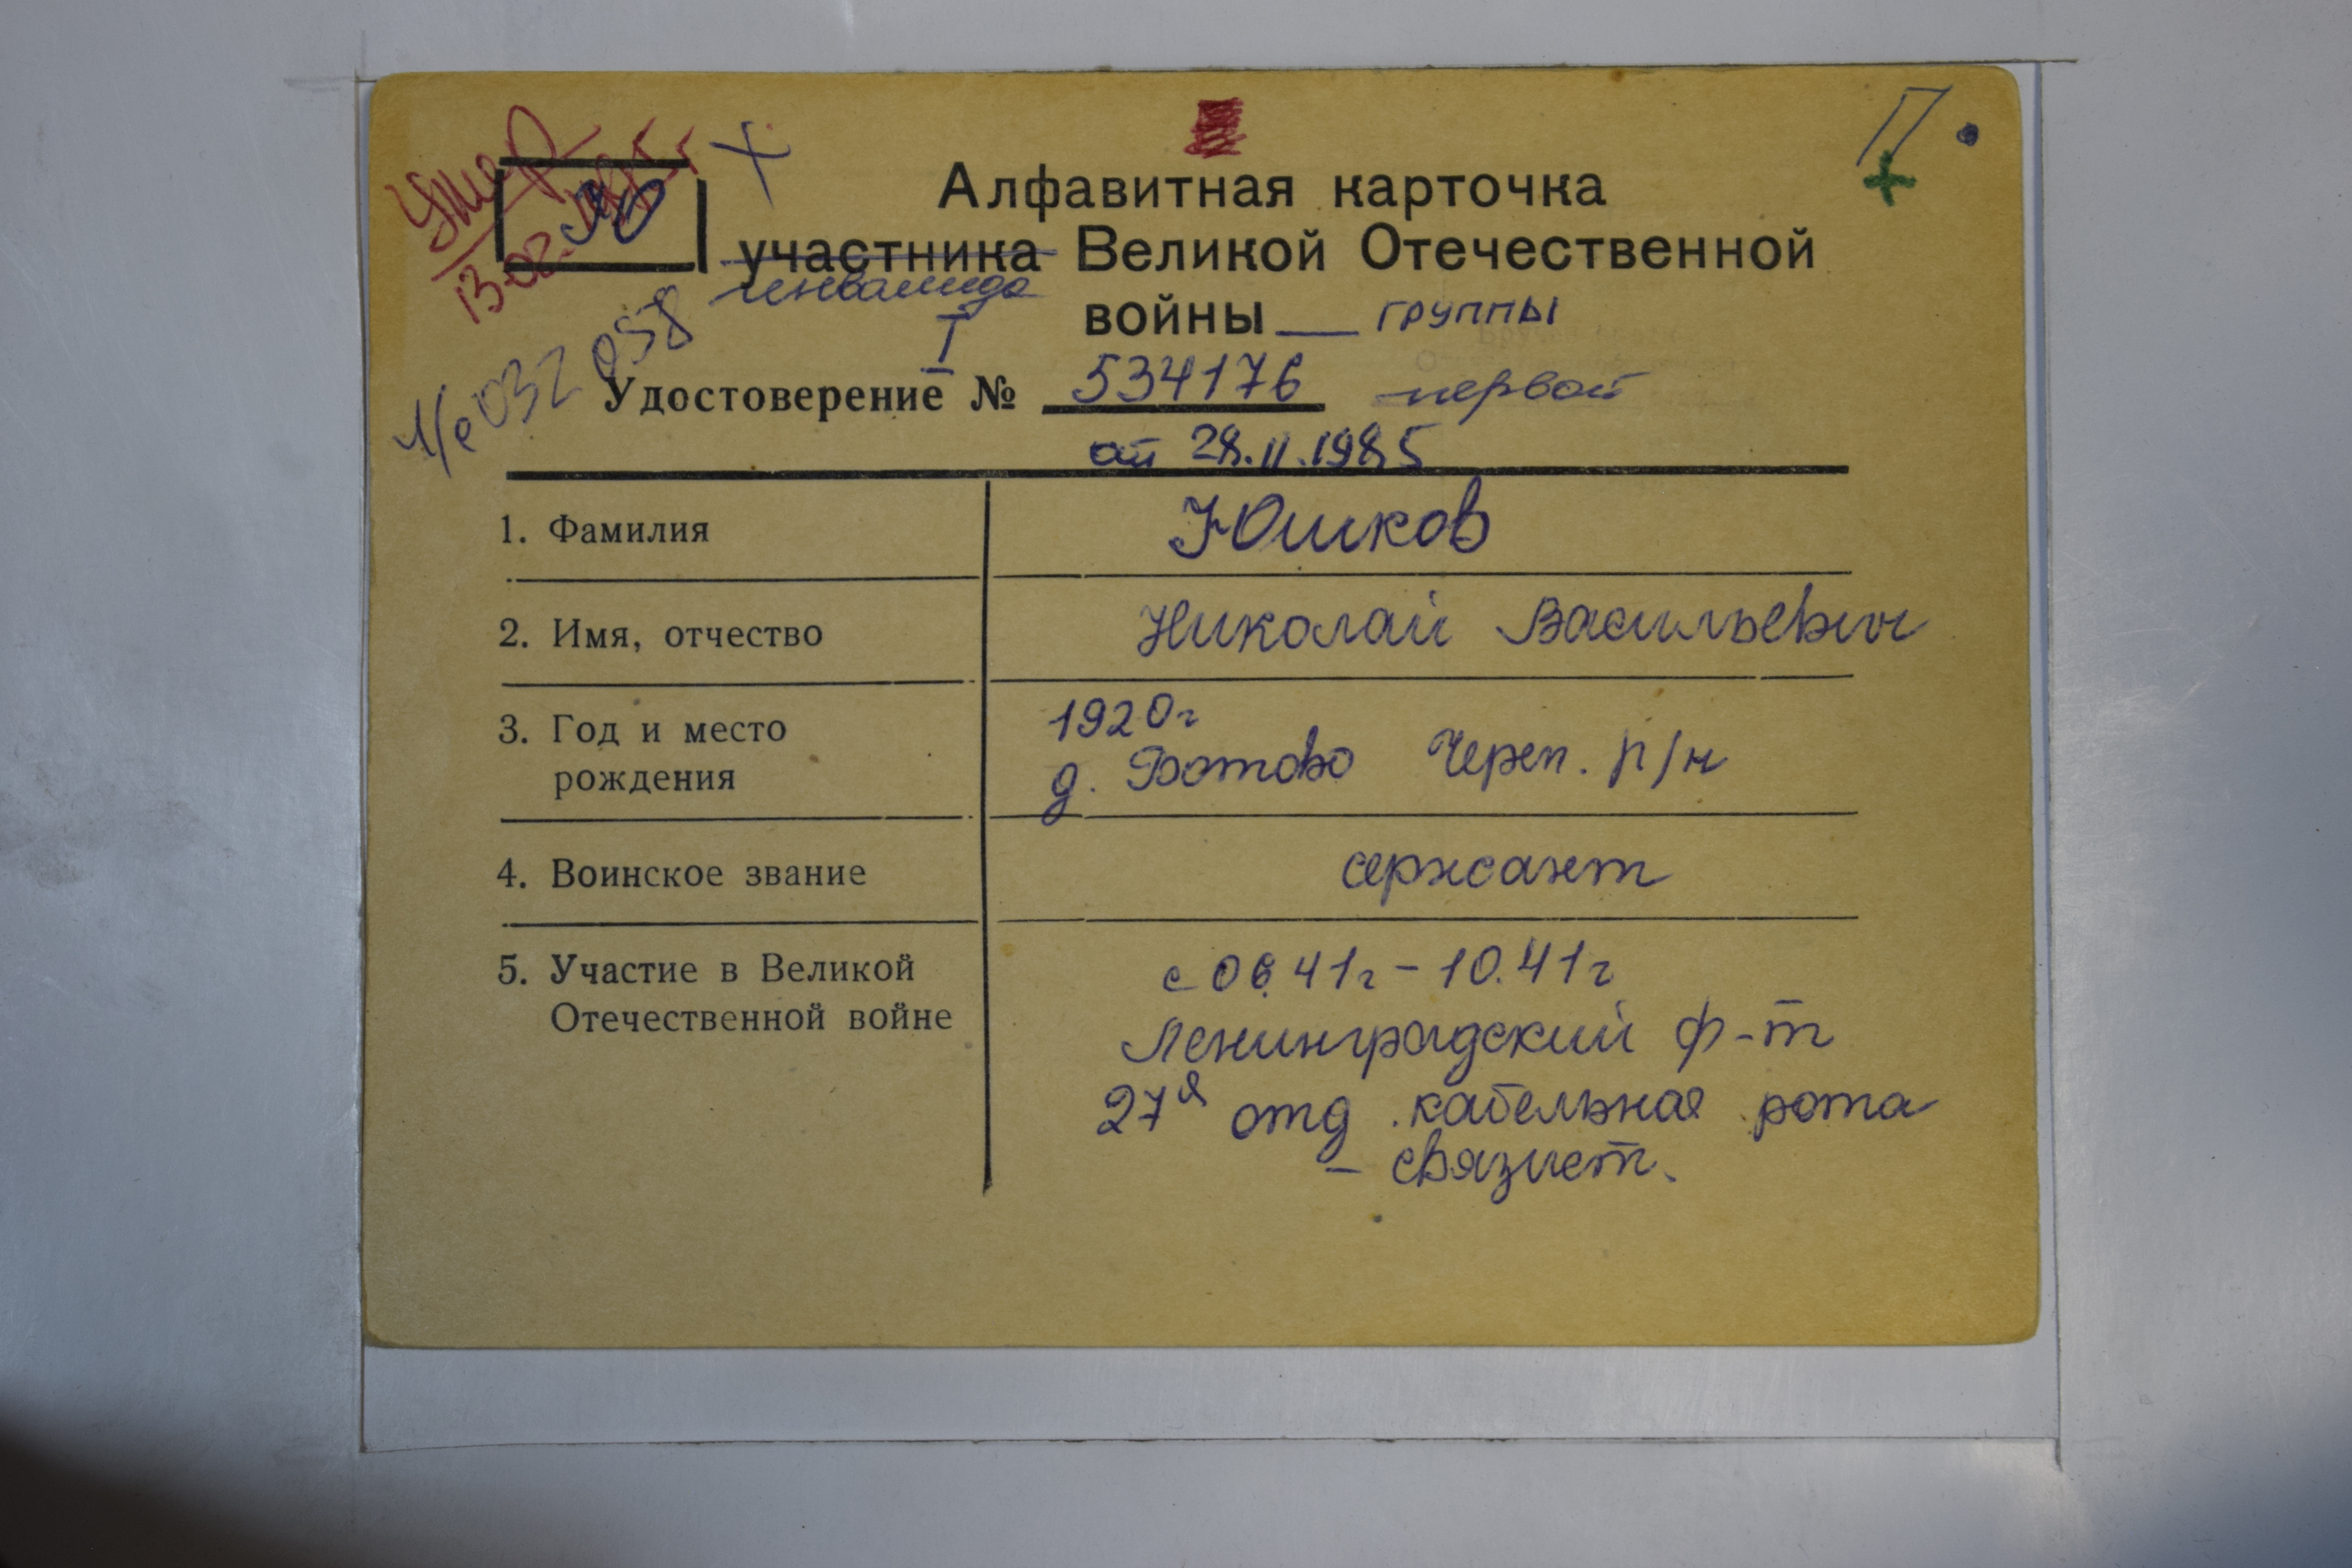 Умер
П.
Ю
Алфавитная карточка
участника Великой Отечественной
инвалида
войны __ группы
I
ч/е 032 058
Удостоверение № 534176 первой
от 28.11.1985
1. Фамилия Юшков
2. Имя, отчество Николай Васильевич
3. Год и место рождения 1920г
д. Ботово Череп. р/н
4. Воинское звание сержант
5. Участие в Великой с 06.41г - 10.41г
Отечественной войне Ленинградский ф-т
27я отд. кабельная рота
- связист.